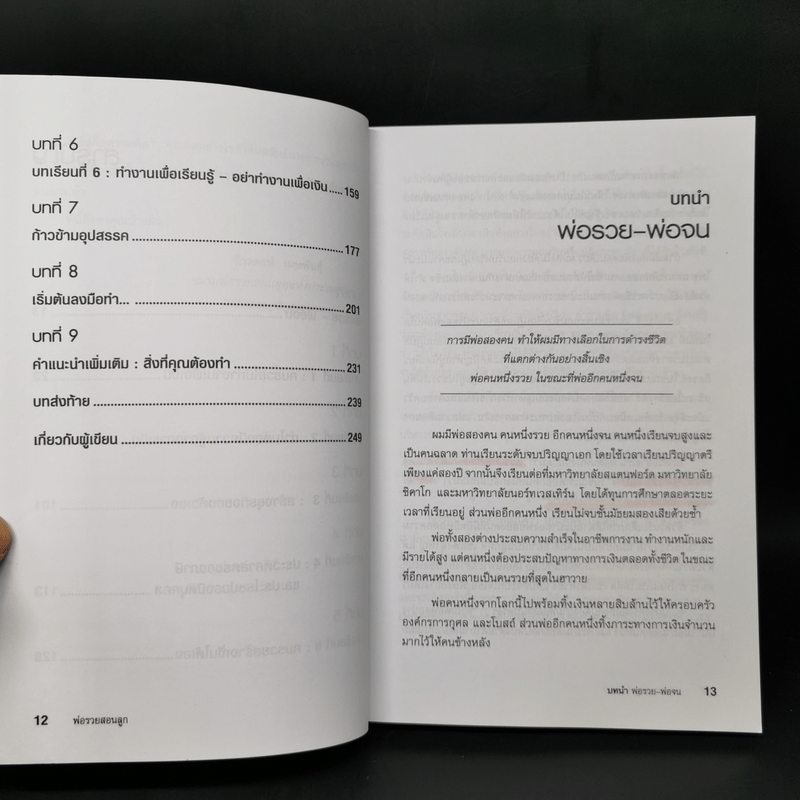 บทที่ 6
บทเรียนที่ 6 : ทำงานเพื่อเรียนรู้ – อย่าทำงานเพื่อเงิน.....159
บทที่ 7
ก้าวข้ามอุปสรรค..........177
บทที่ 8
เริ่มต้นลงมือทำ...201
บทที่ 9
คำแนะนำเพิ่มเติม : สิ่งที่คุณต้องทำ..........231
บทส่งท้าย..........239
เกี่ยวกับผู้เขียน..........249
12 พ่อรวยสอนลูก
บทนำ
พ่อรวย–พ่อจน
การมีพ่อสองคน ทำให้ผมมีทางเลือกในการดำรงชีวิต
ที่แตกต่างกันอย่างสิ้นเชิง
พ่อคนหนึ่งรวย ในขณะที่พ่ออีกคนหนึ่งจน
ผมมีพ่อสองคน คนหนึ่งรวย อีกคนหนึ่งจน คนหนึ่งเรียนจบสูงและ
เป็นคนฉลาด ท่านเรียนระดับจบปริญญาเอก โดยใช้เวลาเรียนปริญญาตรี
เพียงแค่สองปี จากนั้นจึงเรียนต่อที่มหาวิทยาลัยสแตนฟอร์ด มหาวิทยาลัย
ชิคาโก และมหาวิทยาลัยนอร์ทเวสเทิร์น โดยได้ทุนการศึกษาตลอดระยะ
เวลาที่เรียนอยู่ ส่วนพ่ออีกคนหนึ่ง เรียนไม่จบชั้นมัธยมสองเสียด้วยซ้ำ
พ่อทั้งสองต่างประสบความสำเร็จในอาชีพการงาน ทำงานหนักและ
มีรายได้สูง แต่คนหนึ่งต้องประสบปัญหาทางการเงินตลอดทั้งชีวิต ในขณะ
ที่อีกคนหนึ่งกลายเป็นคนรวยที่สุดในฮาวาย
พ่อคนหนึ่งจากโลกนี้ไปพร้อมทิ้งเงินหลายสิบล้านไว้ให้ครอบครัว
องค์กรการกุศล และโบสถ์ ส่วนพ่ออีกคนหนึ่งทิ้งภาระทางการเงินจำนวน
มากไว้ให้คนข้างหลัง
บทนำ พ่อรวย–พ่อจน 13